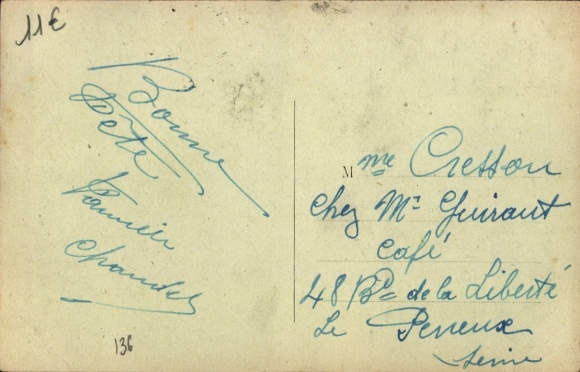 11€
Bonne
Fête
Chandel
136
Mme Cresson
Chez Mr Guirant
Café
48 Bd de la Liberté
Le Perreux
Seine